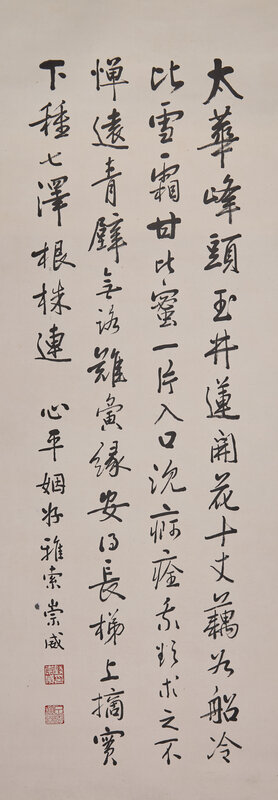 太華峰頭玉井蓮開花十丈藕如船冷
比雪霜甘比蜜一片入口沈痾痊我欲求之不
憚遠青壁無路難夤緣安得長梯上摘實
下種七澤根株連 心平姻好雅索 崇威